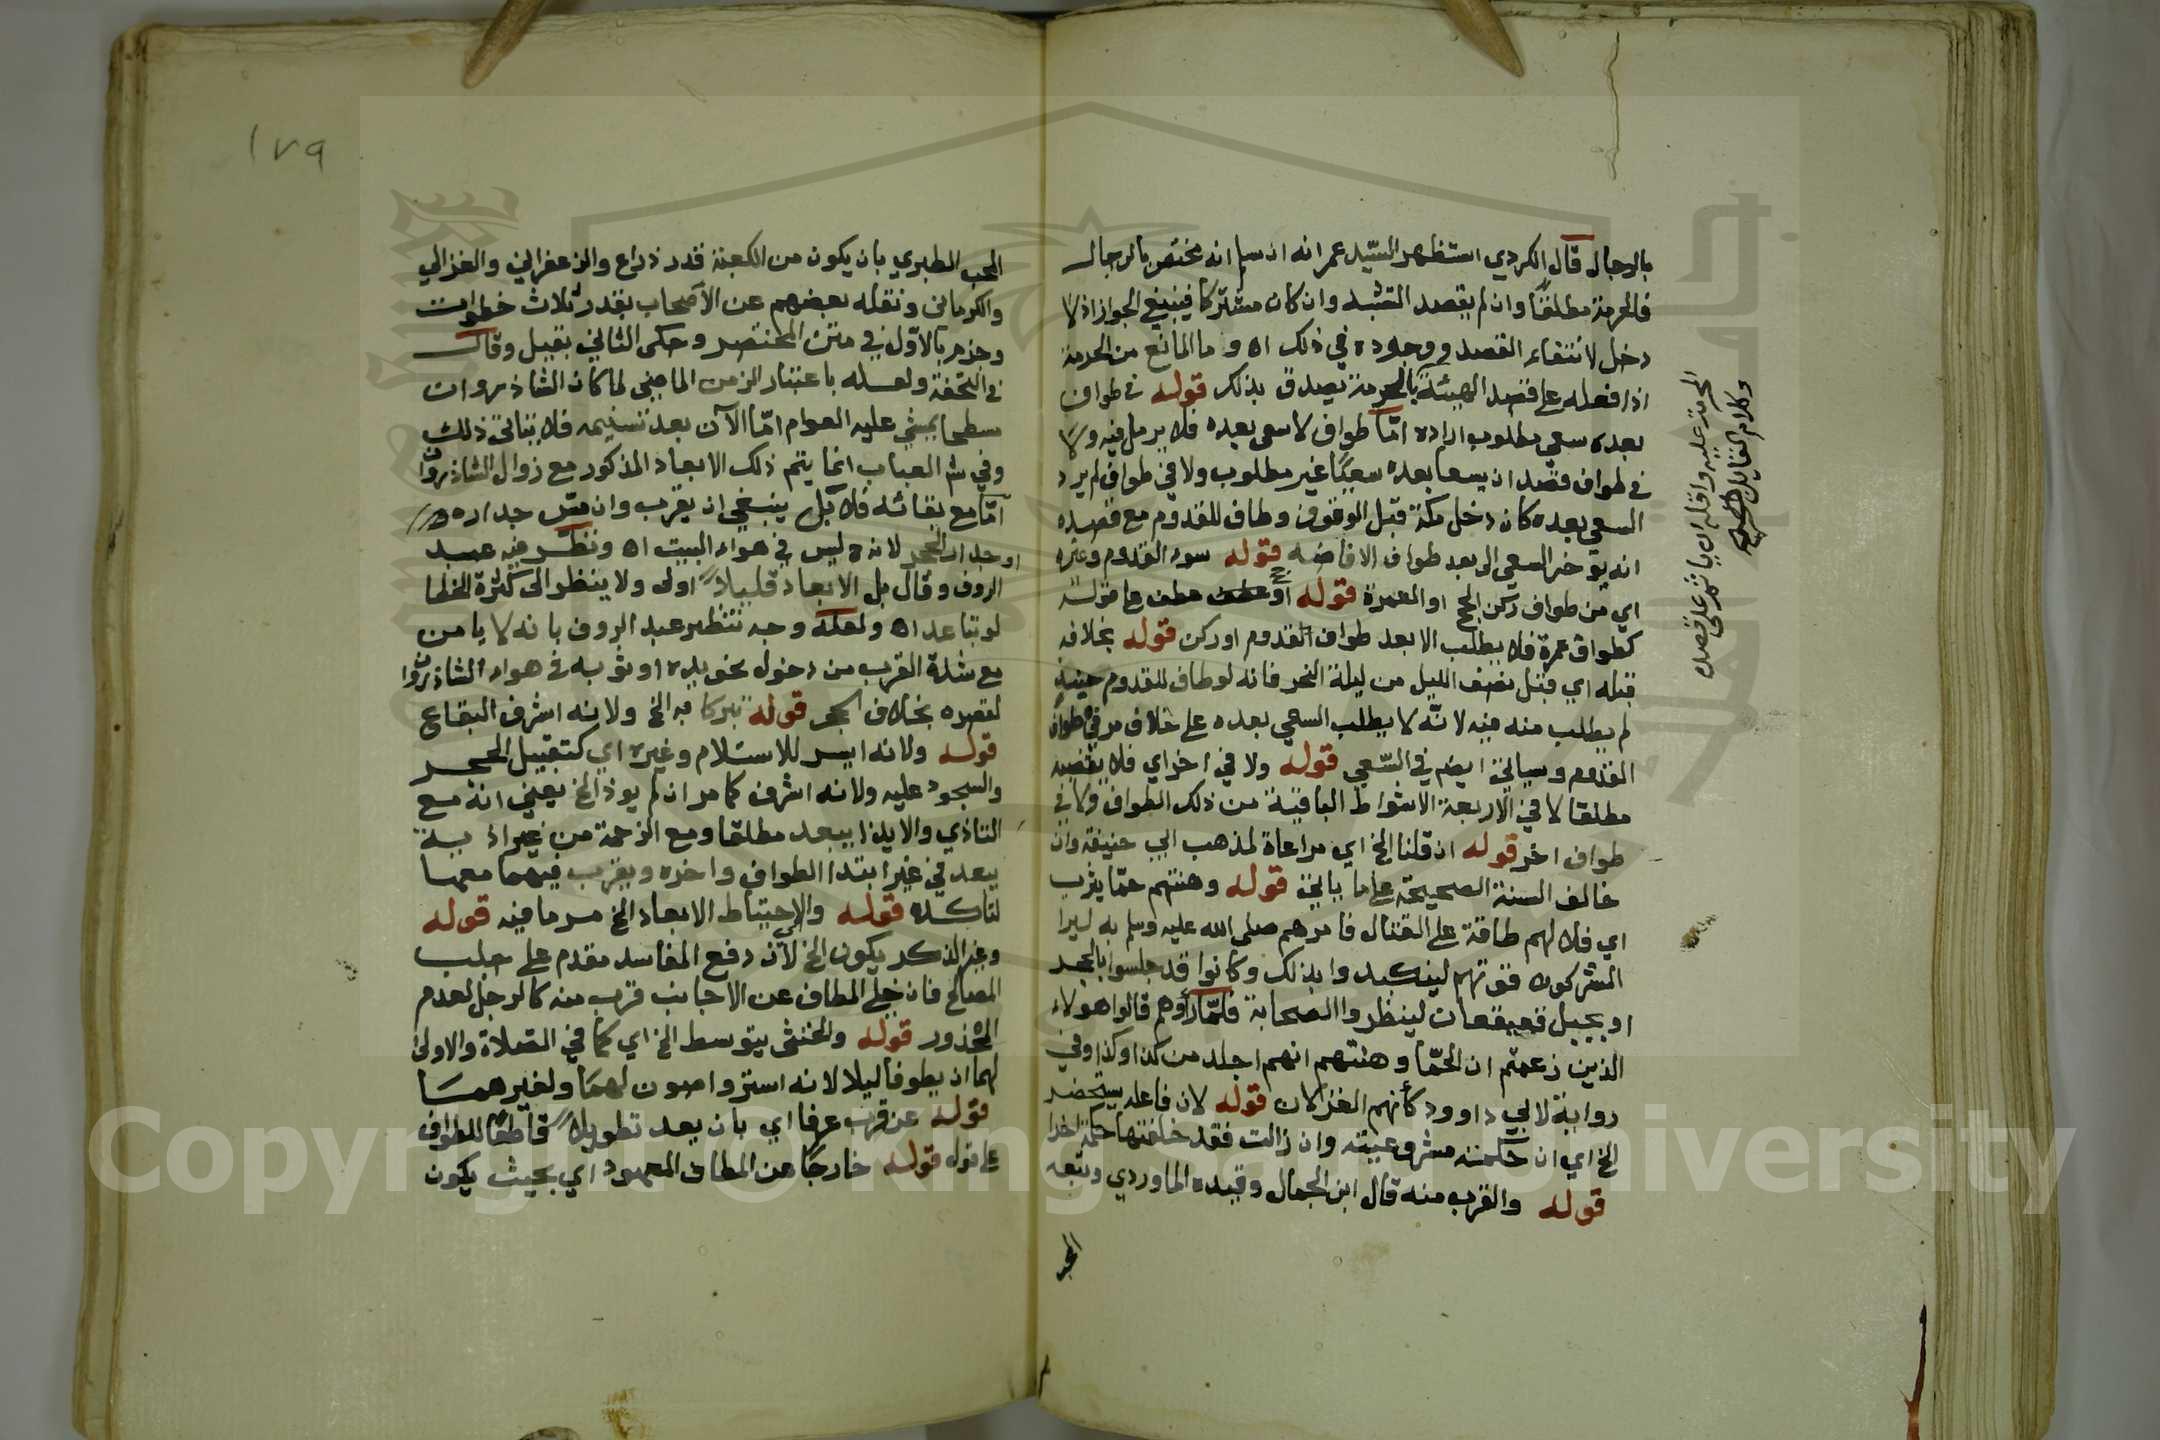 بالرجال قال الكردي استظهر السيد عمر انه ان سلم انه مختص بالرجال
فالحرمة مطلقا وان لم يقصد التشبه وان كان مشتركا فينبغي الجواز اذ لا
دخل لانتفاء القصد ووجوده في ذلك اه وما المانع من الحرمة
اذا فعله على قصد الهيئة بالحرمة تصدق بذلك قوله في طواف
بعده سعي مطلوب اراده امّا طواف لا سعي بعده فلا يرمل فيه ولا
في طواف قصد ان يسعا بعده سعيًا غير مطلوب ولا في طواف لم يرد
السعي بعده كان دخل مكة قبل الوقوف وطاف للقدوم مع قصده
انه يؤخر السعي الى بعد طواف الافاضه قوله سوء القدوم وغيره
اي من طواف ركن الحج او العمرة قوله او عطف على قوله
كطواف عمرة فلا يطلب الا بعد طواف القدوم او ركن قوله بخلافه
قبله اي قبل نصف الليل من ليلة النحر فانه لو طاف للقدوم حينئذ
لم يطلب منه فيه لانّه لا يطلب السعي بعده على خلاف مر في طواف
القدوم وسياتي ايضم في السّعي قوله ولا في اخر اي فلا يقضيه
مطلقا لا في الاربعة الاشواط الباقية من ذلك الطواف ولا في
طواف اخر قوله ان قلنا الخ اي مراعاة لمذهب ابي حنيفة وان
خالف السنة الصحيحة على ما ياتي قوله وهنتهم حمّا يثرب
اي فلا لهم طاقة على القتال فامرهم صلى الله عليه وسلم به ليرا
المشركون قوتهم لينكبدوا بذلك وكانوا قد جلسوا بالحجر
او بجبل قعيقعان لينظروا الصحابة فلمّا رأوهم قالوا هولاء
الذين زعمتم ان الحمّا وهنتهم انهم اجلد من كذا وكذا وفي
رواية لابي داوود كأنهم الغزلان قوله لان فاعله يستحضر
الخ اي ان حكمته مشروعيته وان زالت فقد خلفتها حكمة اخرا
قوله والقرب منه قال ابن الجمال وقيده الماوردي وتبعه
المحب
الحرمة عليه واقله ان ياثم على قصده
المحب الطبري بان يكون من الكعبة قدر ذراع والزعفراني والغزالي
والكرماني ونقله بعضهم عن الأصحاب بقدر ثلاث خطوات
وجزم بالأول في متن المختصر وحكى الثاني بقيل وقال
في التحفة ولعله باعتبار الزمن الماضي لما كان الشاذروان
سطحا يمشي عليه العوام امّا الآن بعد تسنيمه فلا يتاتى ذلك
وفي شم العباب انما يتم ذلك الابعاد المذكور مع زوال الشاذروان
امّا مع بقائه فلا بل ينبغي ان يقرب وان مسّ جداره
او جدار الحجر لانه ليس في هواء البيت اه ونظّر فيه عبد
الروف وقال بل الابعاد قليلا اولى ولا ينظر الى كثرة الخطا
لو تباعد اه ولعله وجه تنظير عبد الروف بانه لا يامن
مع شدة القرب من دخول نحو يده او ثوبه في هواء الشاذروان
لقصره بخلاف الحجر قوله تبركا به الخ ولانه اشرف البقاع
قوله ولانه ايسر للاستلام وغيره اي كتقبيل الحجر
والسجود عليه ولانه اشرف كما مر ان لم يوذ الخ يعني انه مع
التاذي والايذا يبعد مطلقا ومع الزحمة من غير اذية
يبعد في غير ابتدا الطواف واخره ويقرب فيهما معما
لتاكده قوله والاحتياط الابعاد الخ مر ما فيه قوله
وغير الذكر يكون الخ لأن دفع المفاسد مقدم على جلب
المصالح فان خلي المطاف عن الاجانب قرب منه كالرجل لعدم
المحذور قوله والخنثى يتوسط الخ اي كما في الصلاة والاولى
لهما ان يطوفا ليلا لانه استر واصون لهما ولغيرهما
قوله عن قرب عرفا اي بان يعد تطويله قاطعًا للطواف
على قوله قوله خارجا عن المطاف المعهود اي بحيث يكون
١٧٩